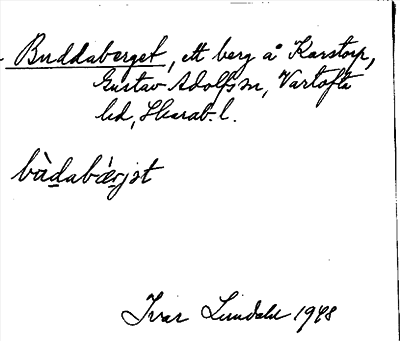 Buddaberget, ett berg å Karstorp,
Gustav Adolfs sn, Vartofta
hd, Skarab. l.
bùdabæ̀rjət
Ivar Lundahl 1948